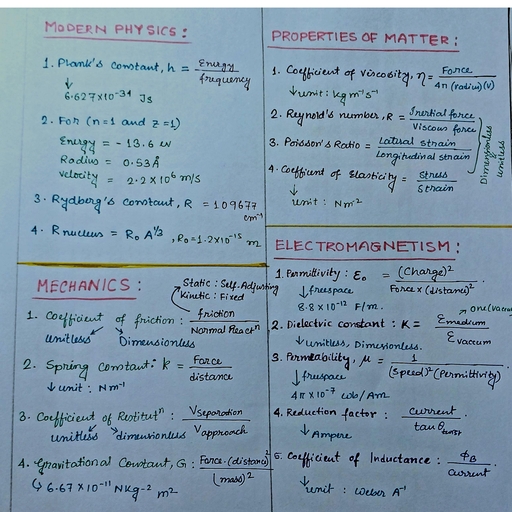 MODERN PHYSICS :
1. Plank's Constant, h = Energy / frequency
↓
6.627×10⁻³⁴ Js
2. For (n=1 and z=1)
Energy = - 13.6 ev
Radius = 0.53Å
Velocity = 2.2×10⁶ m/s
3. Rydberg's Constant, R = 109677 cm⁻¹
4. R nucleus = R₀ A^1/3 , R₀=1.2×10⁻¹⁵ m
PROPERTIES OF MATTER :
1. Coefficient of viscosity, η = Force / 4π(radius)(V)
↓ unit: Kg m⁻¹s⁻¹
2. Reynold's number, R = Inertial force / Viscous force
3. Poisson's Ratio = Lateral strain / Longitudinal strain
Dimensionless unitless
4. Coefficient of Elasticity = Stress / Strain
↓
unit : Nm⁻²
MECHANICS :
Static : Self-Adjusting
Kinetic : Fixed
1. Coefficient of friction : friction / Normal Reactⁿ
unitless Dimensionless
2. Spring Constant : k = Force / distance
↓ unit : Nm⁻¹
3. Coefficient of Restitutⁿ : Vseparation / Vapproach
unitless dimensionless
4. Gravitational Constant, G : Force·(distance)² / (mass)²
↳ 6.67×10⁻¹¹ NKg⁻² m²
ELECTROMAGNETISM :
1. Permittivity : ε₀ = (Charge)² / Force×(distance)²
↓ freespace
8.8×10⁻¹² F/m.
→ one(vacuum
2. Dielectric constant : K = Emedium / Evaccum
↓ Unitless, Dimensionless.
3. Permeability, μ = 1 / (Speed)²(Permittivity)
↓ freespace
4π×10⁻⁷ wb/Am
4. Reduction factor : current / tanθ
↓ Ampere
5. Coefficient of Inductance : ΦB / Current
↓ unit : Weber A⁻¹